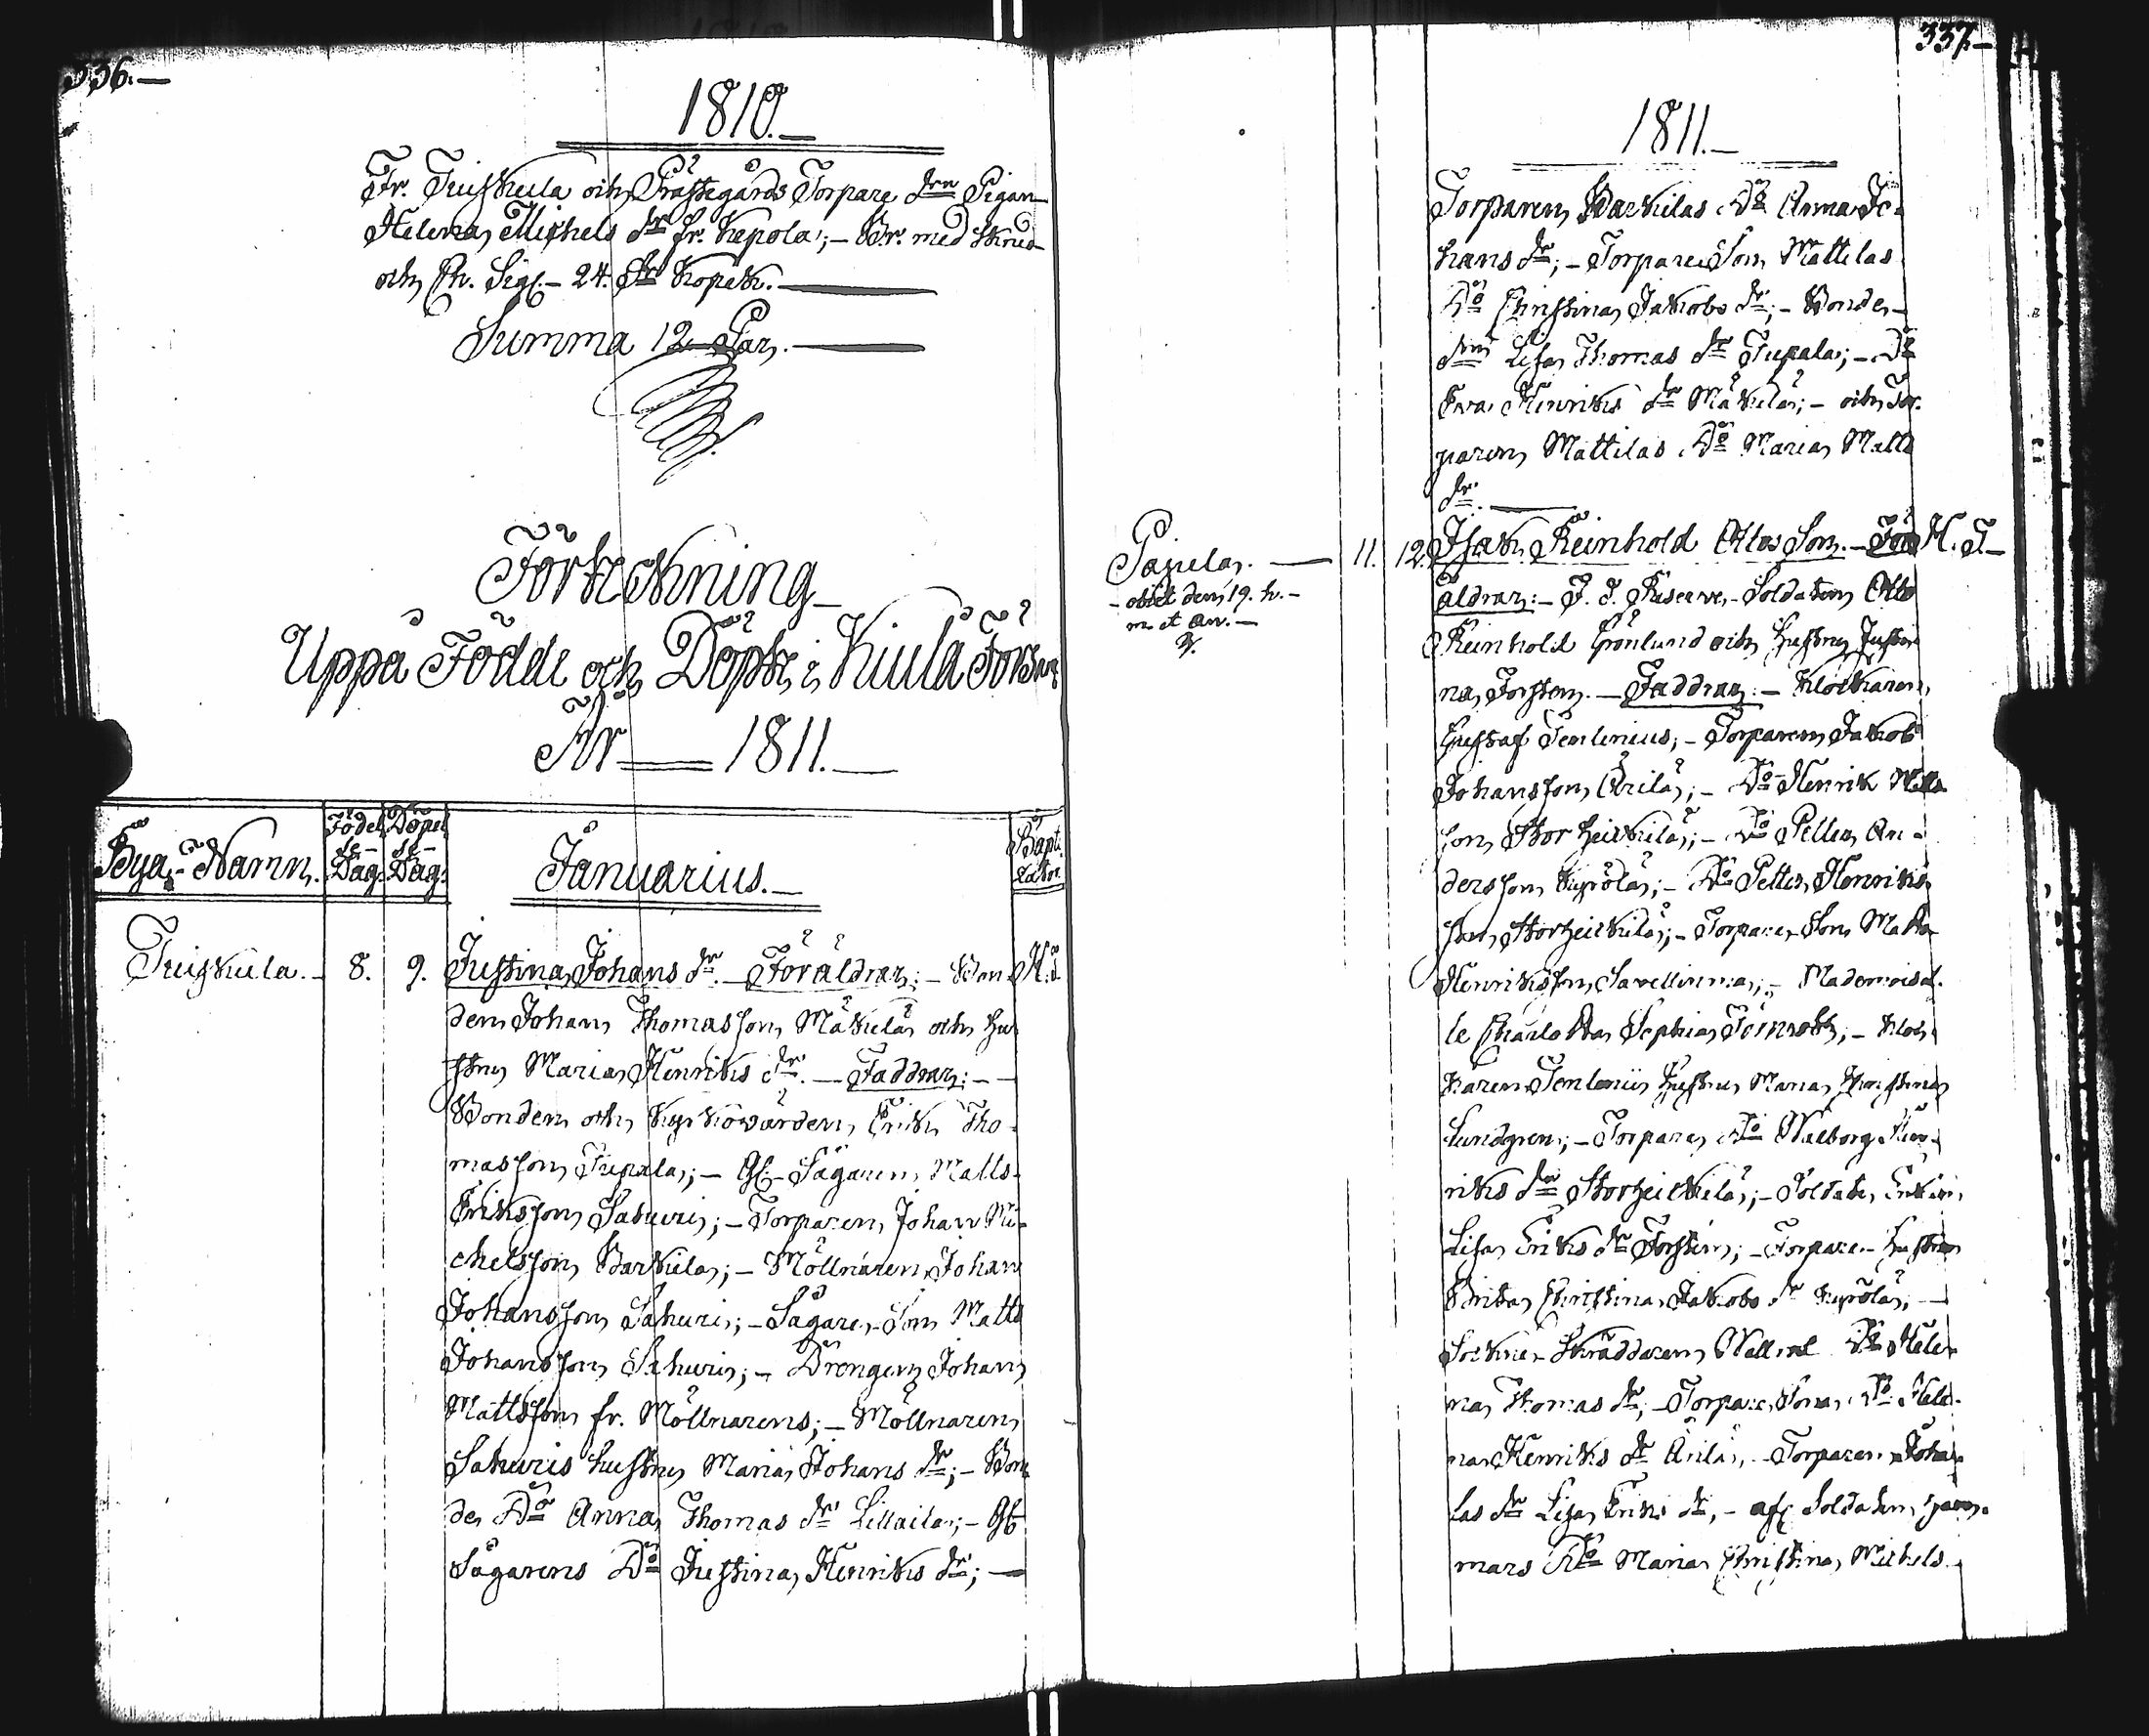 336.—
1810.—
Fr. Tuiskula och Prästegårds Torpare drn Pigan
Helena Michels dr fr. Kepola; – Br. med Skrud
och Sigf. – 24. Kopek. —
Summa 12 Par. —
Förteckning
Uppå Födde och Döpte i Kiula Förs
År — 1811. —
Bya-Namn.
Födel
se-
Dag.
Döpel
se-
Dag.
Januarius. —
Bapti
zator
Tuiskula. – 8. 9. Justina Johans dr. – Föräldrar: – Bon-
den Johan Thomasson Mäkilä och Hu
strun Maria Henriks dr. – Faddrar: –
Bonden och Kyrkovärden Erik Tho-
masson Tupala; – Gl. Sågaren Matts
Eriksson Sahuri; – Torparen Johan Mi-
chelsson Warkila; – Möllnären Johan
Johansson Sahuri; – Sågare Son Matts
Johansson Sahuri; – Drengen Johan
Mattsson fr. Möllnärens; – Möllnären
Sahuris hustru Maria Johans dr; – Bon
de Do Anna Thomas dr Lillaila; –
Sågarens Do Justina Henriks dr; —
337.—
1811.—
Torparen Warkilas Do Anna Jo-
hans dr; – Torpare Son Mattilas
Do Christina Jakobs dr; – Bonde-
Lisa Thomas dr Tupala; – Do
Eva Henriks dr Mäkilä; – och Tor-
paren Mattilas Do Maria Matts
dr. —
Pajula. — 11. 12. Isak Reinhold Ottos Son. – För H. T.
- obiit den 19. h. -
m. et an. —
äldrar: – Reserve-Soldaten Otto
Reinhold Grönlund och Hustrun Justi
na Forsten. – Faddrar: – Klockaren
Gustaf Tenlenius; – Torparen Jakob
Johansson Arila; – Do Henrik Matts
son Stor Heikkilä; – Do Petter An-
dersson Kyrölä; – Do Petter Henriks
son Storheikkilä; – Torpare Son Matts
Henriksson Savellinna; – Mademoisel-
le Charlotta Sophia Törnroth; – Kloc-
karen Tenlenii Hustru Maria Christina
Lundgren; – Torpare Do Walborg Hen-
riks dr Storheikkilä; – Soldate Enkan
Lisa Eriks dr Forsten; – Torpare Hustrun
Brita Christina Jakobs dr Kyrölä; —
Sockne Skräddaren Wallins Do Hele-
na Thomas dr; – Torpare Sons Do Hele-
na Henriks dr Arila; – Torparen
las dr Lisa Eriks dr; – afsk. Soldaten
mars Do Maria Christina Michels